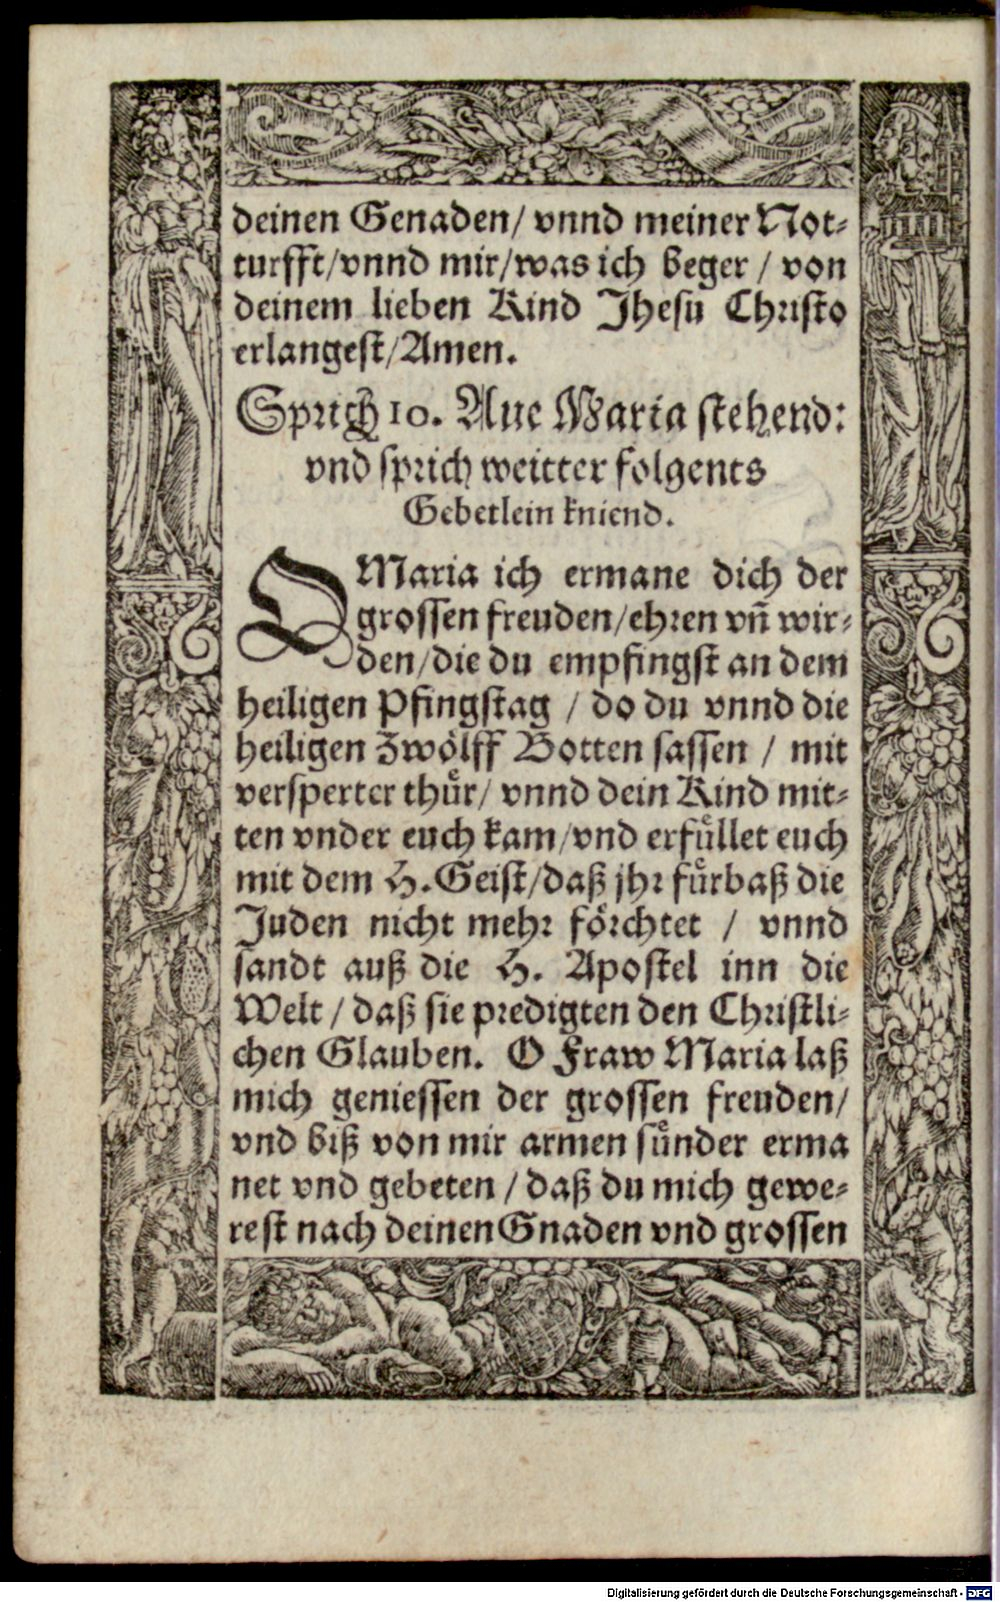 deinen Genaden/ vnnd meiner Not-
turfft/vnnd mir/was ich beger / von
deinem lieben Kind Jhesu Christo
erlangest/Amen.
Sprich 10. Aue Maria stehend:
vnd sprich weitter folgents
Gebetlein kniend.
O Maria ich ermane dich der
grossen freuden/ehren vn̄ wir-
den/die du empfingst an dem
heiligen Pfingstag / do du vnnd die
heiligen Zwoͤlff Botten sassen / mit
versperter thuͤr/ vnnd dein Kind mit-
ten vnder euch kam/vnd erfuͤllet euch
mit dem H. Geist/daß jhr fuͤrbaß die
Juden nicht mehr foͤrchtet / vnnd
sandt auß die H. Apostel inn die
Welt / daß sie predigten den Christli-
chen Glauben. O Fraw Maria laß
mich geniessen der grossen freuden/
vnd biß von mir armen suͤnder erma
net vnd gebeten / daß du mich gewe-
rest nach deinen Gnaden vnd grossen
Digitalisierung gefördert durch die Deutsche Forschungsgemeinschaft - DFG